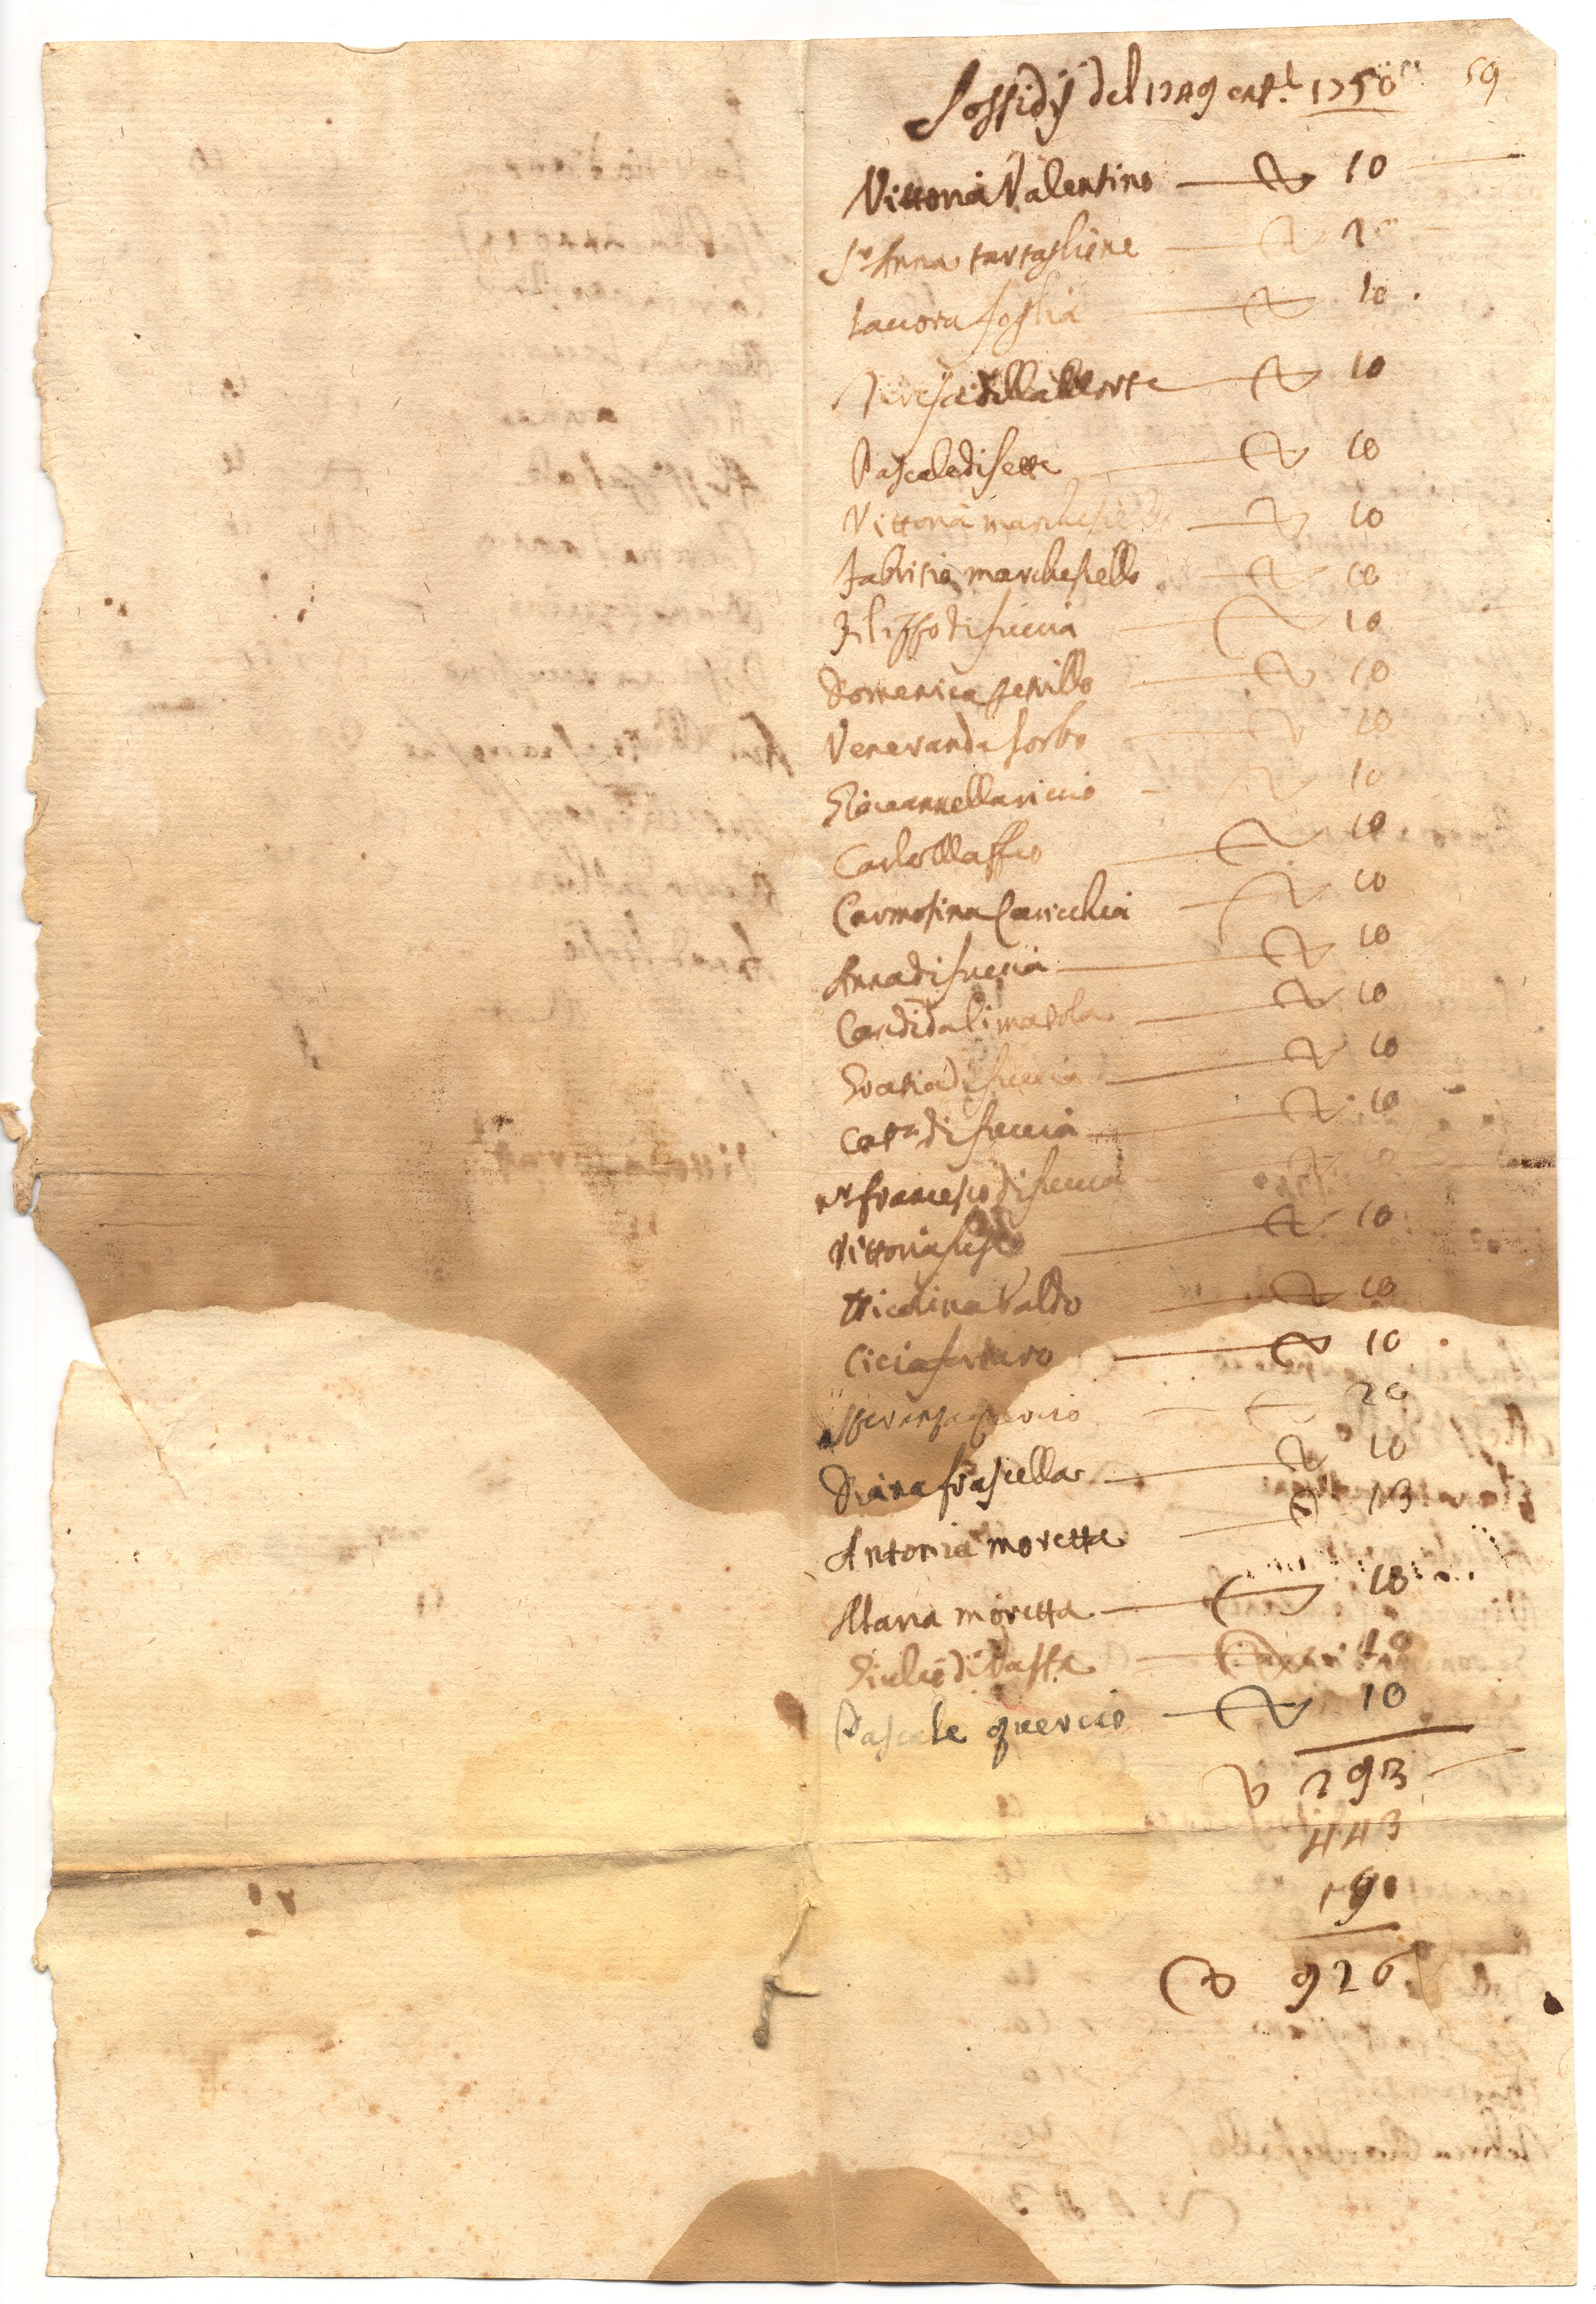 Sossidÿ del 1749 cap.l 1750 59
Vittoria Valentino 10
Sr Anna tartaglione 20
Lauora foglia 10
Teresa della Corte 10
Pascale di sette 10
Vittoria marchesiello 10
fabritio marchesiello 10
Filippo di fuccia 10
Domenica petrillo 10
Veneranda sorbo 10
Giovannella riccio 10
Carlo Maffeo 10
Carmosina Caricchia 10
Anna di fuccia 10
Candida limatola 10
Gratia di fuccia 10
Catna di fuccia 10
francesco di fuccia 10
Vittoria 10
Nicolina Valdo 10
Cicia santoro 10
Speranza quercio 20
Diana frasciella 10
Antonia moretta 13
Maria moretta 10
Giulio di 10
Pascale quercio 10
293
443
190
926